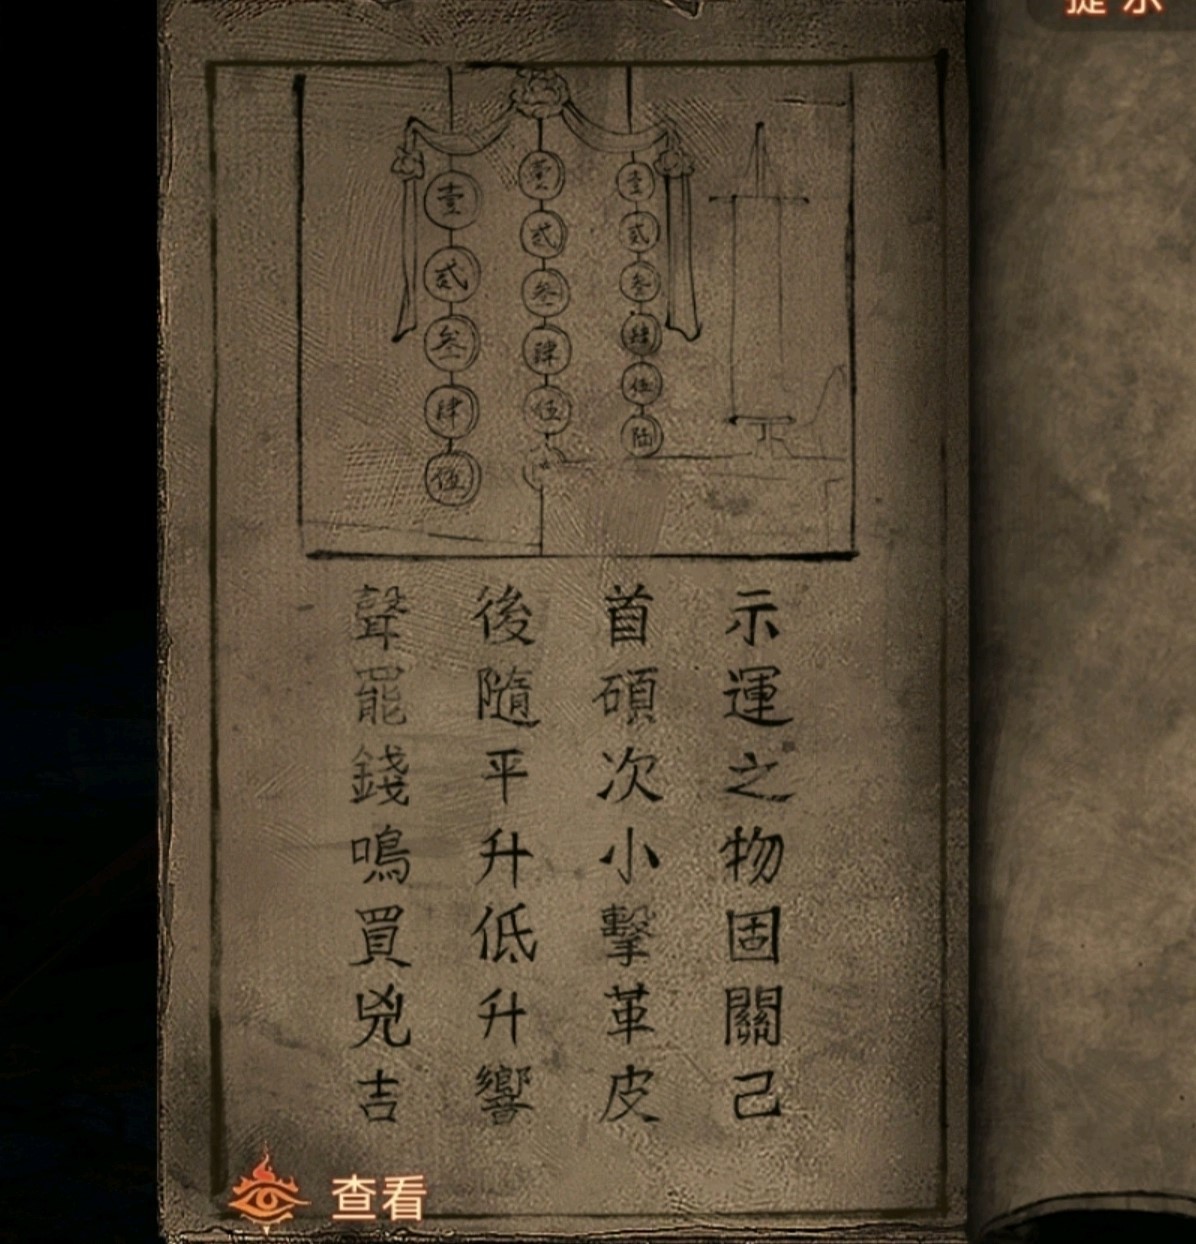 提示
壹貳叁肆伍
壹貳叁肆伍
壹貳叁肆伍陆
示運之物固關己
首碩次小擊革皮
後隨平升低升響
聲罷錢鳴買兇吉
查看